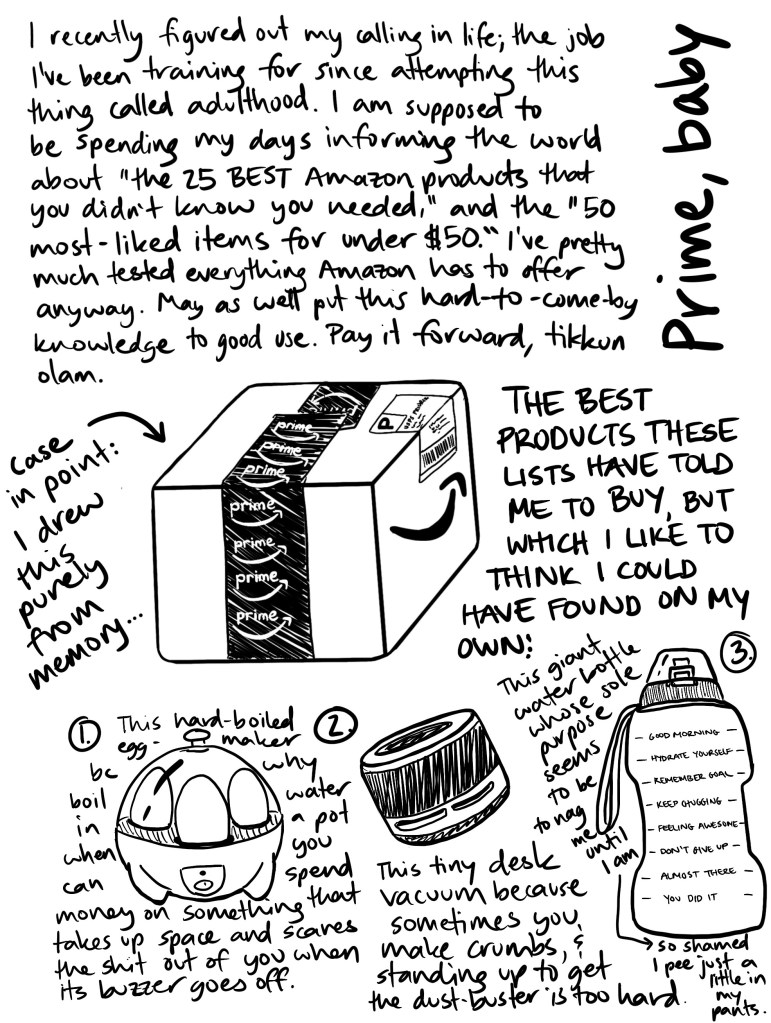 Prime, baby
I recently figured out my calling in life; the job
I've been training for since attempting this
thing called adulthood. I am supposed to
be spending my days informing the world
about "the 25 BEST Amazon products that
you didn't know you needed," and the "50
most-liked items for under $50." I've pretty
much tested everything Amazon has to offer
anyway. May as well put this hard-to-come-by
knowledge to good use. Pay it forward, tikkun
olam.
case
in point:
I drew
this
purely
from
memory...
prime
prime
prime
prime
prime
prime
prime
P
THE BEST
PRODUCTS THESE
LISTS HAVE TOLD
ME TO BUY, BUT
WHICH I LIKE TO
THINK I COULD
HAVE FOUND ON MY
OWN:
1.
This hard-boiled
egg-maker
bc why
boil water
in a pot
when you
can spend
money on something that
takes up space and scares
the shit out of you when
its buzzer goes off.
2.
This tiny desk
vacuum because
sometimes you
make crumbs, &
standing up to get
the dust-buster is too hard.
3.
This giant
water bottle
whose sole
purpose
seems
to be
to nag
me
until
I am
so shamed
I pee just a
little in
my
pants.
GOOD MORNING
HYDRATE YOURSELF
REMEMBER GOAL
KEEP CHUGGING
FEELING AWESOME
DON'T GIVE UP
ALMOST THERE
YOU DID IT